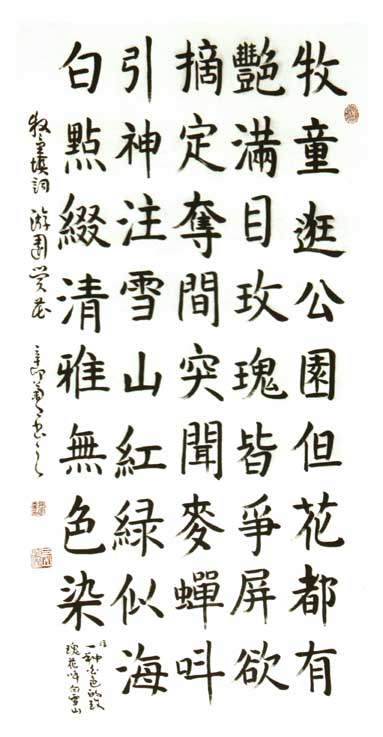 牧童逛公園但花都有
艷滿目玫瑰皆爭屏欲
摘定奪間突聞麥蟬叫
引神注雪山紅綠似海
白點綴清雅無色染
注
一种白色的玫
瑰花叫白雪山
牧童填詞 游園赏花
辛卯